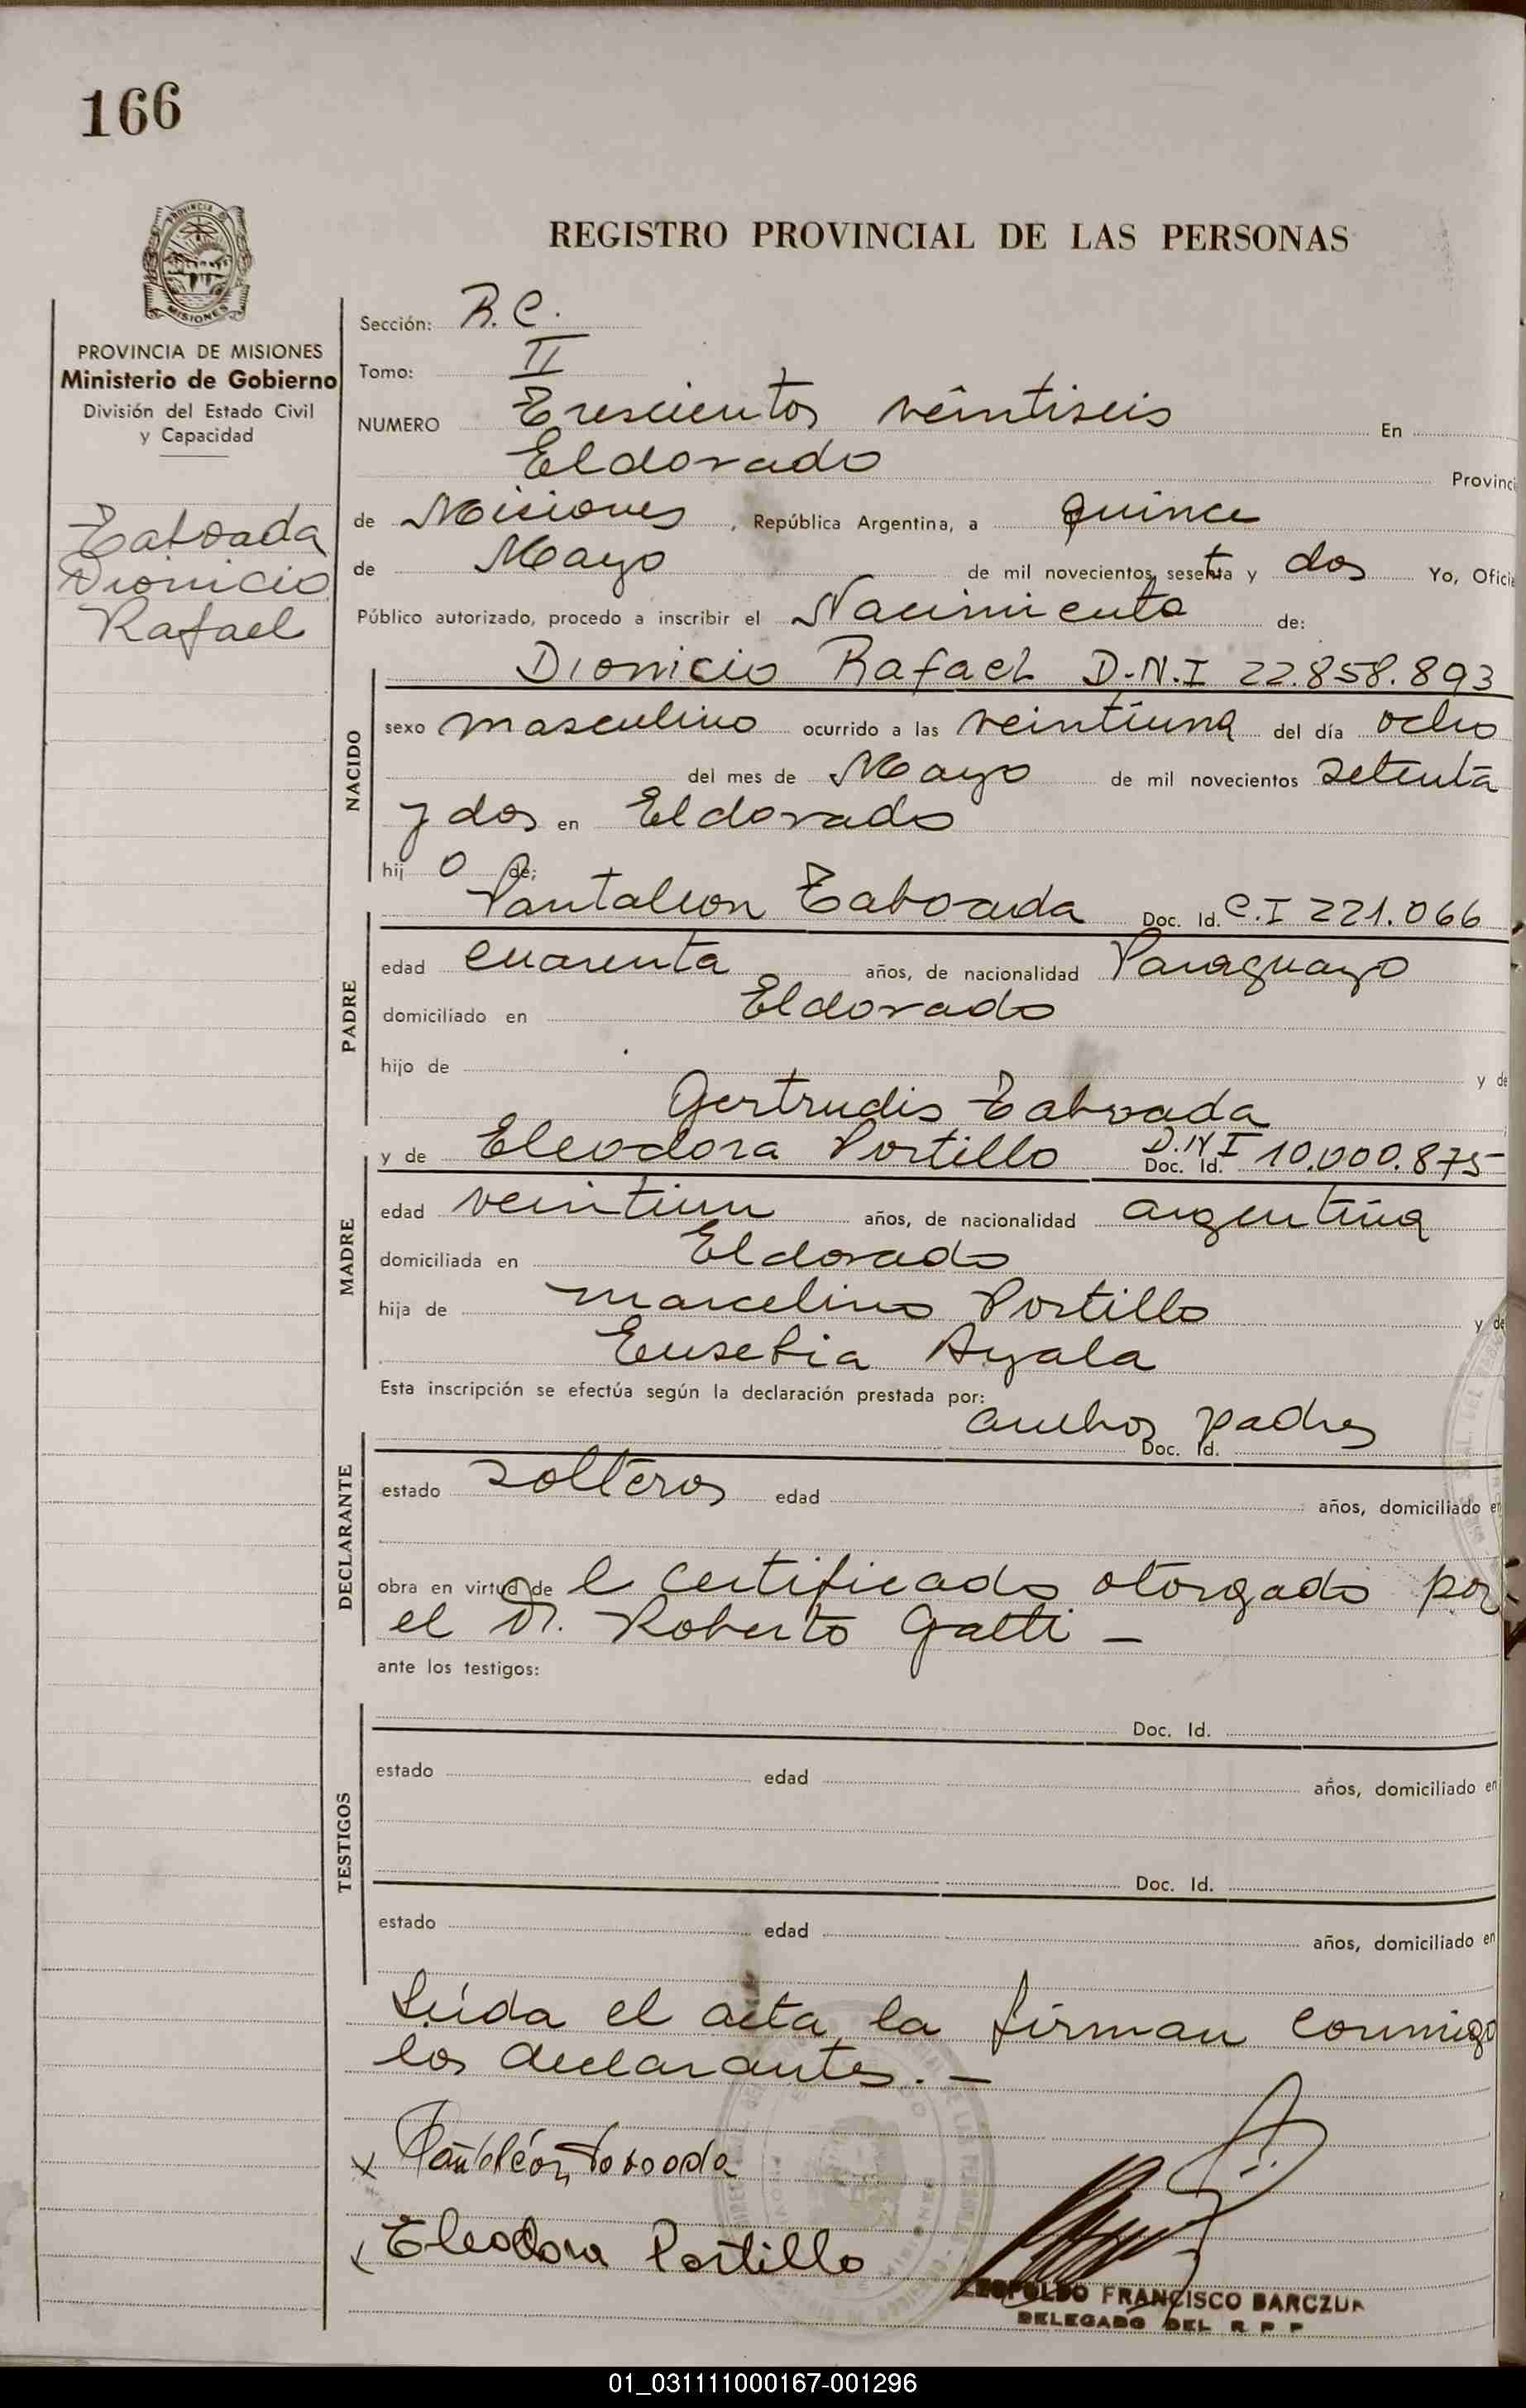 166
REGISTRO PROVINCIAL DE LAS PERSONAS
PROVINCIA DE MISIONES
Ministerio de Gobierno
División del Estado Civil
y Capacidad
Taboada
Dionicio
Rafael
Sección: R.C.
Tomo: II
NUMERO Trescientos veintiseis En
Eldorado Provinci
de Misiones, República Argentina, a quince
de Mayo de mil novecientos sesetta y dos Yo, Oficia
Público autorizado, procedo a inscribir el Nacimiento de:
NACIDO
Dionicio Rafael D.N.I 22.858.893
sexo masculino ocurrido a las veintiuna del día ocho
del mes de Mayo de mil novecientos setenta
y dos en Eldorado
hij o de:
PADRE
Pantaleon Taboada Doc. Id. C.I 221.066
edad cuarenta años, de nacionalidad Paraguayo
domiciliado en Eldorado
hijo de y de
Gertrudis Taboada
MADRE
y de Eleodora Portillo D.N.I Doc. Id. 10.000.875
edad veintiun años, de nacionalidad argentina
domiciliada en Eldorado
hija de Marcelino Portillo y de
Eusebia Ayala
Esta inscripción se efectúa según la declaración prestada por:
ambos padres
DECLARANTE
Doc. Id.
estado solteros edad años, domiciliado en
obra en virtud de l certificado otorgado por
el Dr. Roberto Gatti –
ante los testigos:
TESTIGOS
Doc. Id.
estado edad años, domiciliado en
Doc. Id.
estado edad años, domiciliado en
Leída el acta, la firman conmigo
los declarantes. –
x Pantaleón Taboada
x Eleodora Portillo
LEOPOLDO FRANCISCO BARCZUK
DELEGADO DEL R P P
01_031111000167-001296